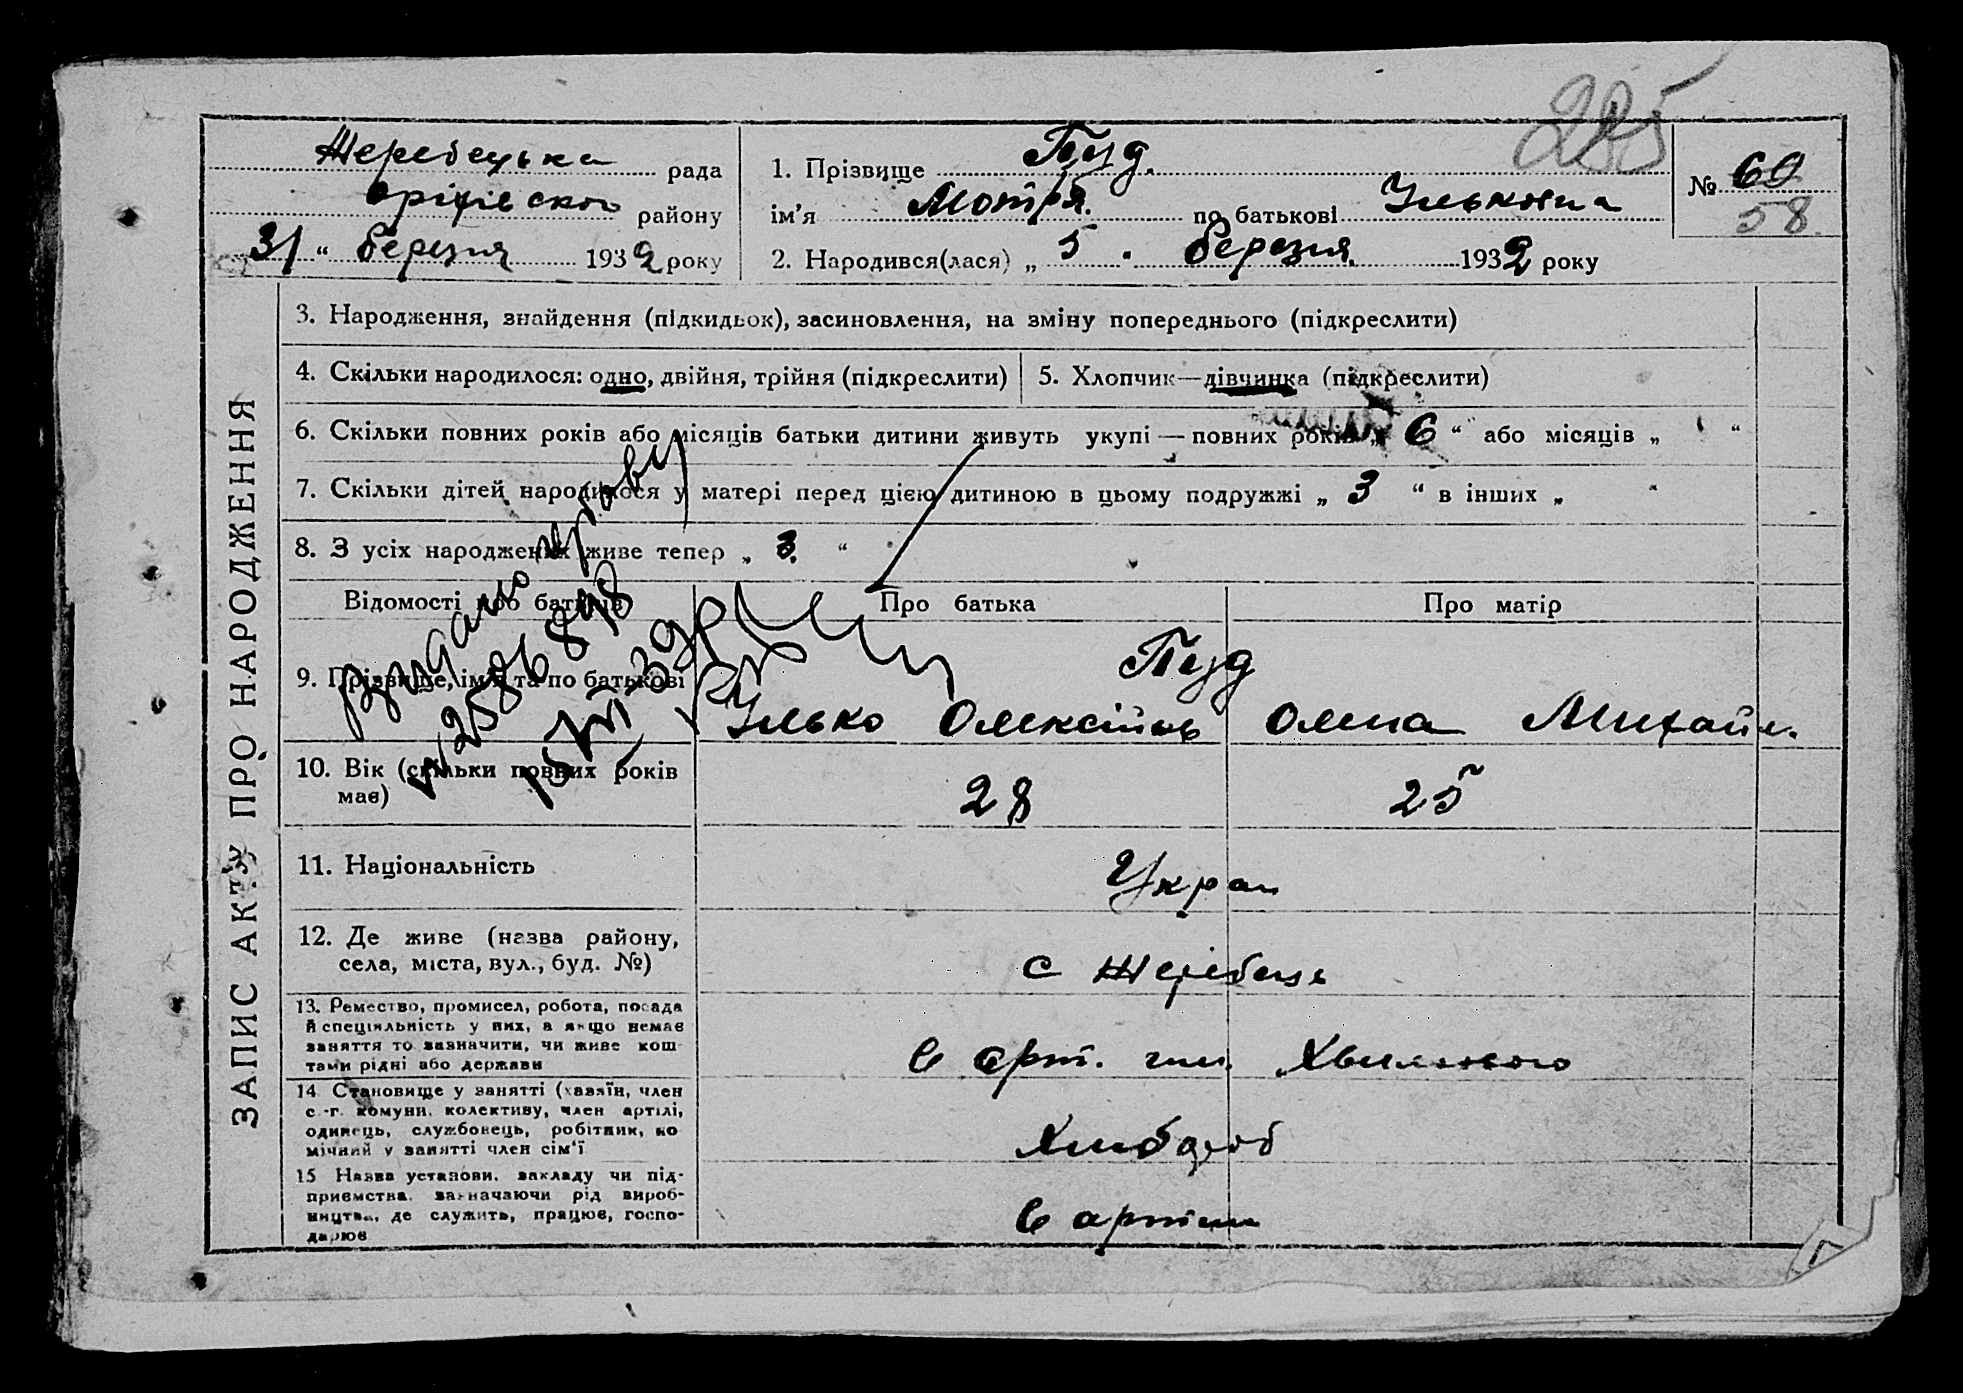 285
Жеребецька рада
оріхівского району
31 “ березня 1932 року
1. Прізвище Пуд.
ім’я Мотря. по батькові Ільковна
2. Народився(лася) „ 5 “ березня 1932 року
№ 60
58
ЗАПИС АКТУ ПРО НАРОДЖЕННЯ
3. Народження, знайдення (підкидьок), засиновлення, на зміну попереднього (підкреслити)
4. Скільки народилося: одно, двійня, трійня (підкреслити)
5. Хлопчик—дівчинка (підкреслити)
6. Скільки повних років або місяців батьки дитини живуть укупі — повних років „ 6 “ або місяців „ “
7. Скільки дітей народилося у матері перед цією дитиною в цьому подружжі „ 3 “ в інших „ “
8. З усіх народжених живе тепер „ 3. “
Відомості про батьків
Про батька
Про матір
9. Прізвище, ім’я та по батькові
Пуд
Ілько Олексійов
Олена Михайл.
10. Вік (скільки повних років має)
28
25
11. Національність
Украи
12. Де живе (назва району,
села, міста, вул., буд. №)
с Жеребець
13. Ремество, промисел, робота, посада
й спеціяльність у них, а якщо немає
заняття то зазначити, чи живе кош-
тами рідні або держави
в арт. им. Хвильового
14 Становище у занятті (хазяїн, член
с.-г. комуни, колективу, член артілі,
одинець, службовець, робітник, по
мічний у занятті член сім'ї
Хлибороб
15 Назва установи, закладу чи під-
приємства, зазначаючи рід вироб-
ництва, де служить, працює, госпо-
дарює
в артили
Видано